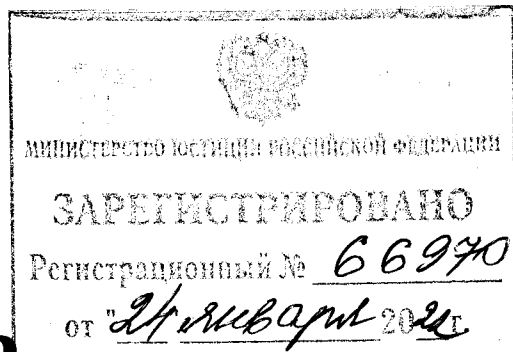 МИНИСТЕРСТВО ЮСТИЦИИ РОССИЙСКОЙ ФЕДЕРАЦИИ
ЗАРЕГИСТРИРОВАНО
Регистрационный № 66970
от "24 января 2022г.